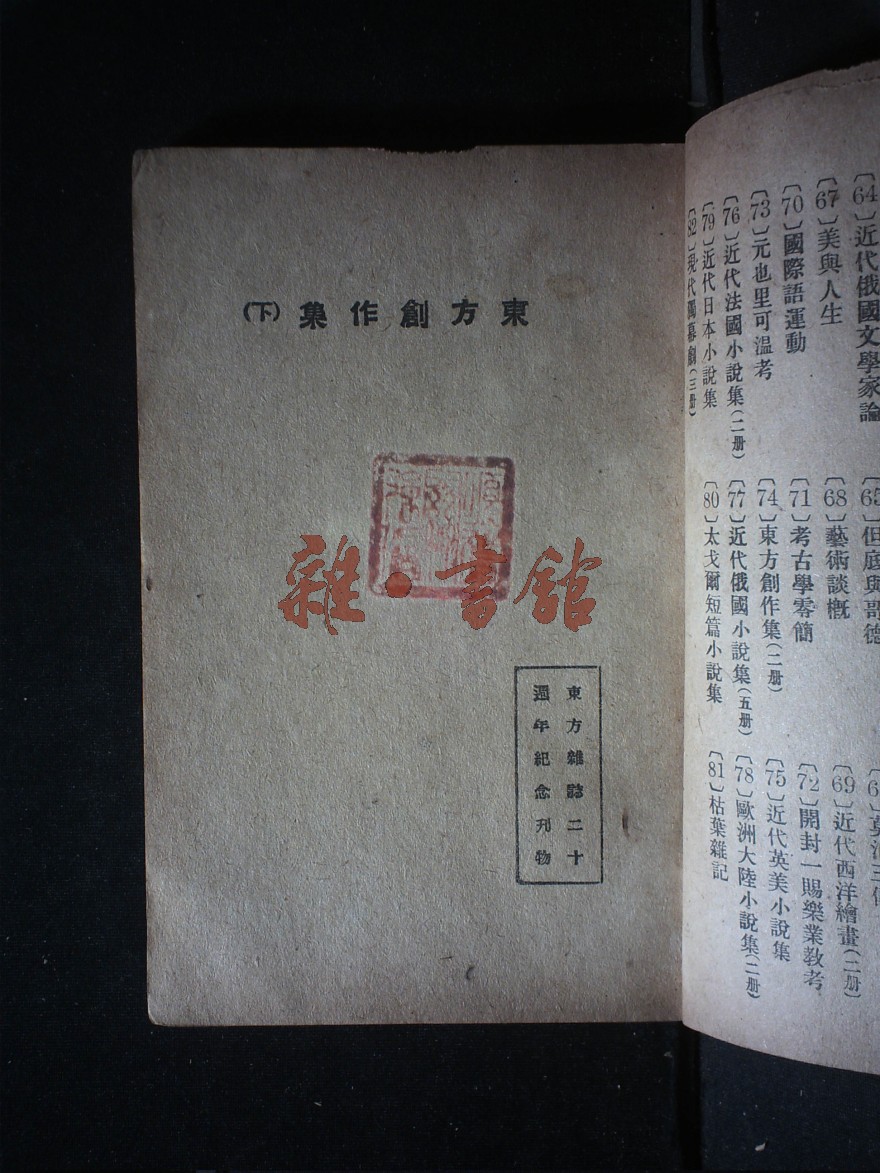 東方創作集(下)
東方雜誌二十
週年紀念刊物
雜·書館
〔64〕近代俄國文學家論
〔67〕美與人生
〔70〕國際語運動
〔73〕元也里可溫考
〔76〕近代法國小說集(二册)
〔79〕近代日本小說集
〔82〕現代獨幕劇(三册)
〔65〕但底與哥德
〔68〕藝術談概
〔71〕考古學零簡
〔74〕東方創作集(二册)
〔77〕近代俄國小說集(五册)
〔80〕太戈爾短篇小說集
〔69〕近代西洋繪畫(二册)
〔72〕開封一賜樂業教考
〔75〕近代英美小說集
〔78〕歐洲大陸小說集(二册)
〔81〕枯葉雜記